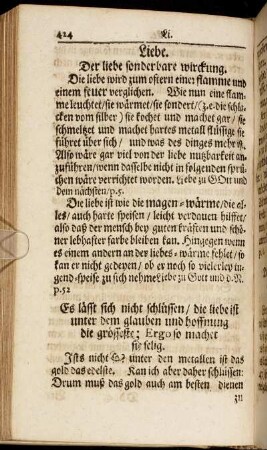 424 Li.
Liebe.
Der liebe sonderbare wirckung.
Die liebe wird zum öftern einer flamme und
einem feuer verglichen. Wie nun eine flam-
me leuchtet/ sie wärmet/ sie sondert/ (z.e. die schla-
cken vom silber) sie kochet und machet gar/ sie
schmeltzet und machet hartes metall flüssig: sie
führet über sich/ und was des dinges mehr ist.
Also wäre gar viel von der liebe nutzbarkeit an-
zuführen/ wenn dasselbe nicht in folgenden sprü-
chen wäre verrichtet worden. Liebe zu GOtt und
dem nächsten/ p.5.
Die liebe ist wie die magen-wärme/ die al-
les/ auch harte speisen/ leicht verdauen hilffet/
also daß der mensch bey guten kräfften und schö-
ner lebhafter farbe bleiben kan. Hingegen wenn
es einem andern an der liebes-wärme fehlet/ so
kan er nicht gedeyen/ ob er noch so vielerley tu-
gend-speise zu sich nehme Liebe zu Gott und d. N.
p.52
Es lässt sich nicht schlüssen/ die liebe ist
unter dem glauben und hoffnung
die grösseste; Ergo so machet
sie selig.
Ists nicht? unter den metallen ist das
gold das edelste. Kan ich aber daher schlüssen:
Drum muß das gold auch am besten dienen
zu